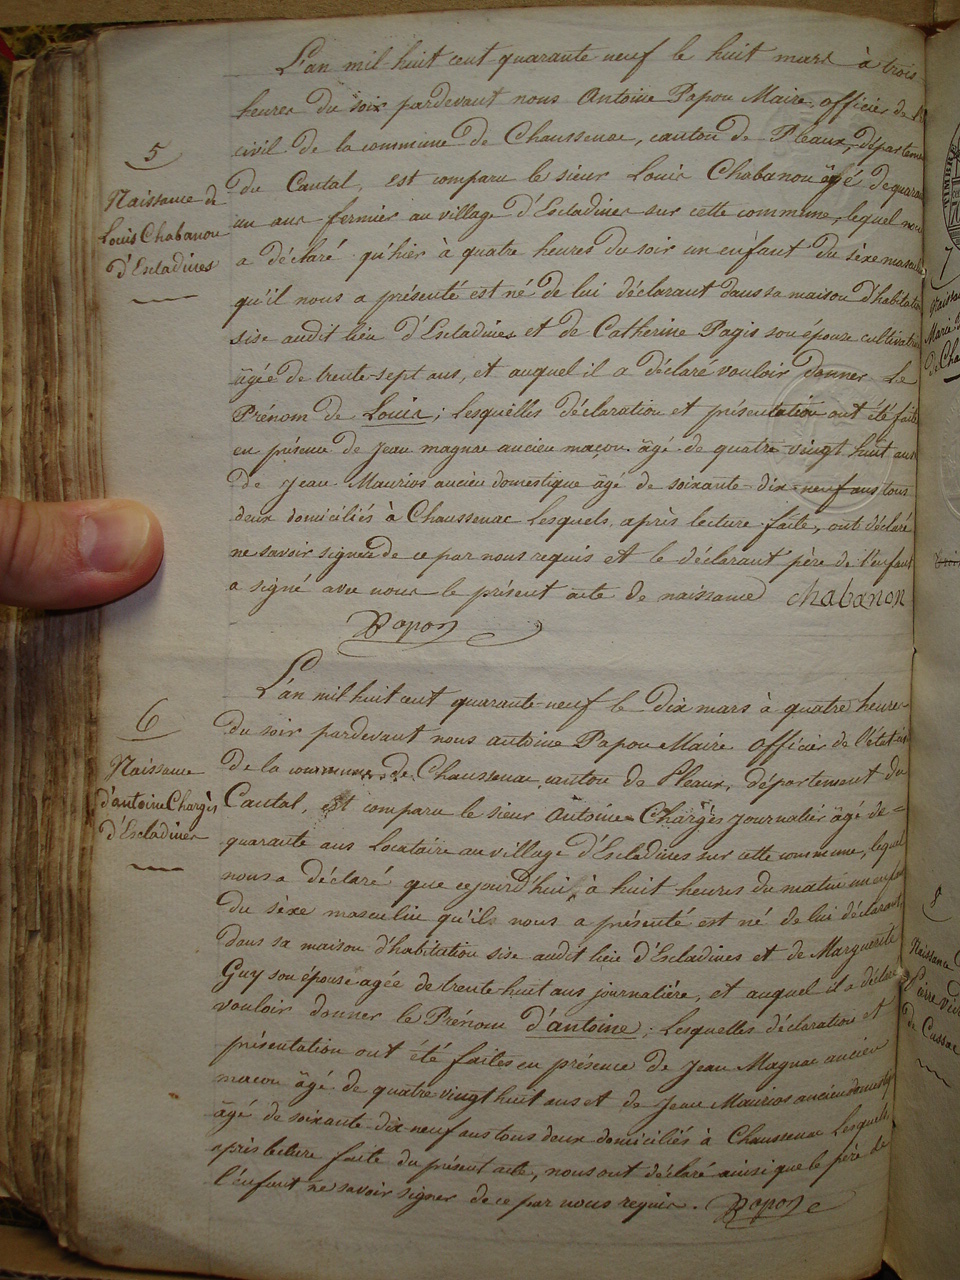 5
Naissance de
Louis Chabanon
d'Escladines
L'an mil huit cent quarante neuf le huit mars à trois
heures du soir pardevant nous Antoine Papon Maire, officier de l'
civil de la commune de Chaussenac, canton de Pleaux, départeme
du Cantal, est comparu le sieur Louis Chabanon âgé de quaran
un ans fermier au village d'Escladines sur cette commune, lequel nous
a déclaré qu'hier à quatre heures du soir un enfant du sèxe masculin
qu'il nous a présenté est né de lui déclarant dans sa maison d'habitation
sise audit lieu d'Escladines et de Catherine Pagis son épouse cultivatrice
âgée de trente-sept ans, et auquel il a déclaré vouloir donner le
Prénom de Louis; lesquelles déclaration et présentation ont été faites
en présence de Jean magnac ancien maçon âgé de quatre vingt huit ans
de Jean Maurios ancien domestique âgé de soixante-dix-neuf ans tous
deux domiciliés à Chaussenac lesquels, après lecture faite, ont déclaré
ne savoir signer de ce par nous requis et le déclarant père de l'enfant
a signé avec nous le présent acte de naissance Chabanon
Papon
6
Naissance
d'antoine Chargès
d'Escladines
L'an mil huit cent quarante-neuf le dix mars à quatre heures
du soir pardevant nous antoine Papon Maire officier de l'état civil
de la commune de Chaussenac canton de Pleaux, département du
Cantal, est comparu le sieur Antoine Chargès journalier âgé de=
quarante ans locataire au village d'Escladines sur cette commune, lequel
nous a déclaré que cejourd'hui à huit heures du matin un enfant
du sèxe masculin qu'il nous a présenté est né de lui déclarant
dans sa maison d'habitation sise audit lieu d'Escladines et de Marguerite
Guy son épouse agée de trente-huit ans journalière, et auquel il a déclaré
vouloir donner le Prénom d'antoine; lesquelles déclaration et
présentation ont été faites en présence de Jean Magnac ancien
maçon âgé de quatre vingt huit ans et de Jean Maurios ancien domestiq
âgé de soixante-dix-neuf ans tous deux domiciliés à Chaussenac lesquels,
après lecture faite du présent acte, nous ont déclaré ainsi que le père de
l'enfant ne savoir signer de ce par nous requis. Papon
TIMBRE
7
Naissa
Marie
de Cha
8
Naissance
Pierre
de Cussac